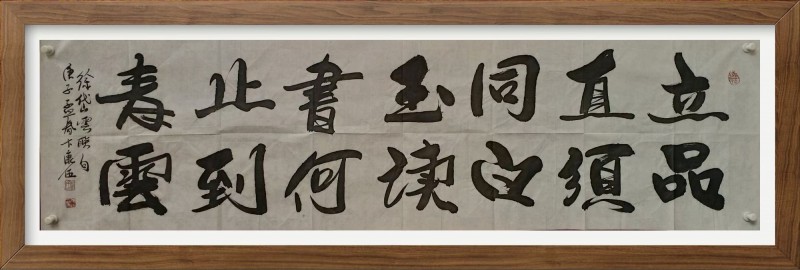 立品
直須
同白
玉读
書何
止到
青雲
徐岱雲联句
庚子孟春